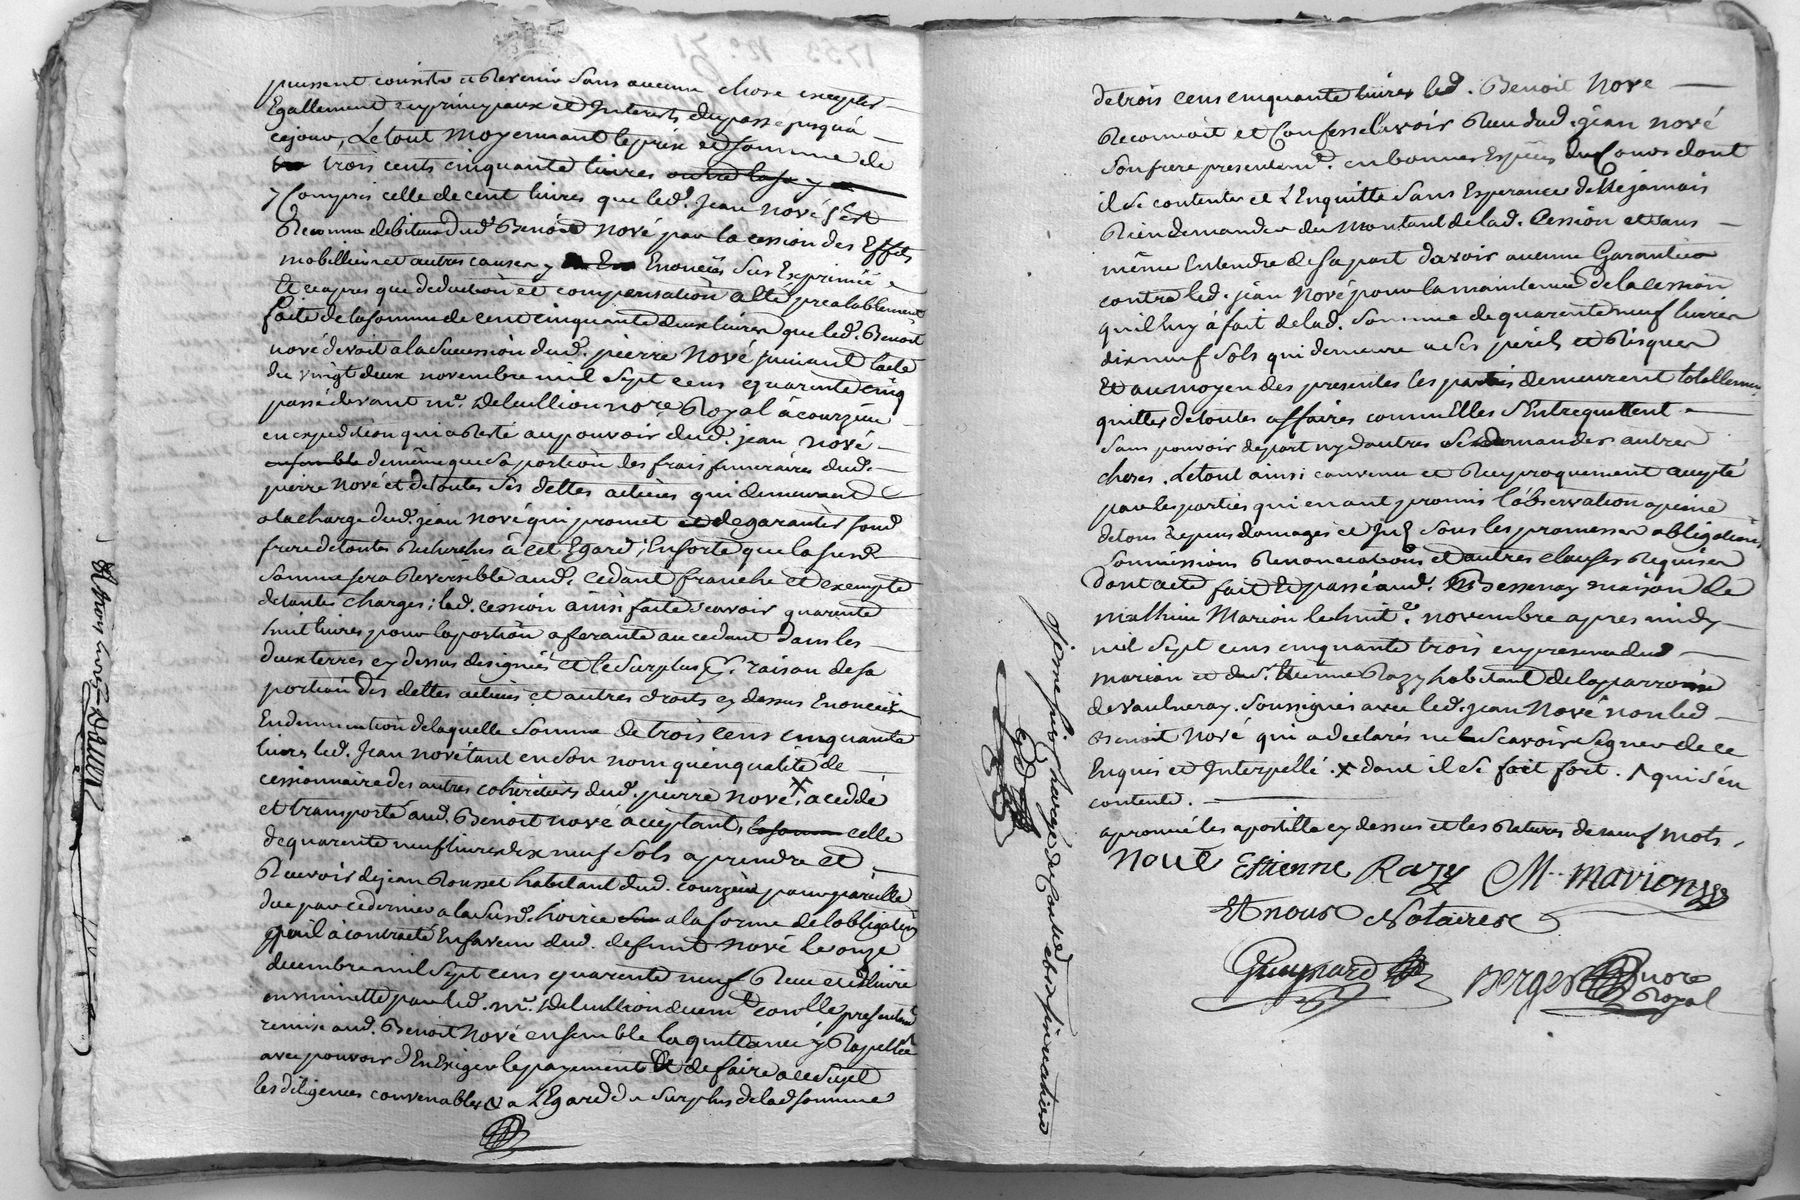 puissent consister et Revenir sans aucune chose excepter
Egallement en principaux et Interests du passé jusqu'à
ce jour, Le tout moyennant le prix et somme de
trois cents cinquante livres
y Compris celle de cent livres que led. Jean Nové s'est
Reconnu debiteur dud. Benoit Nové par la cession des Effets
mobilliers et autres causes y Enoncées sus Exprimée
Et ce apres que deduction et compensation a été prealablement
faite de la somme de cent cinquante deux livres que led. Benoit
nové devoit a la sucession dud. pierre Nové suivant l'acte
du vingt deux novembre mil sept cens quarente cinq
passé devant me. Deleullion nore Royal à courzieu
en expedition qui a resté au pouvoir dud. jean nové
ensemble de même que sa portion des frais funeraires dud.
pierre Nové et de toutes ses dettes actives qui demeurent
a la charge dud. jean nové qui promet et de garantir sond
frere de toutes Recherches à cet Egard; En sorte que la susd.
somme sera Reversible aud. cedant franche et exempte
de toutes charges; lad. cession ainsi faite scavoir quarente
huit livres pour la portion aferante au cedant dans les
deux terres cy dessus designées et le surplus pr. raison de sa
portion des dettes actives et autres droits cy dessus Enoncées
En deminution de laquelle somme de trois cens cinquante
livres led. Jean nové tant en son nom qu'en qualité de
cessionnaire des autres coheritiers dud. pierre nové x, a cedé
et transporté aud. Benoit nové acceptant, la somme celle
de quarente neuf livres dix neuf sols a prendre et
Recevoir de jean Rousset habitant dud. courzieu pour pareille
due par ce dernier a la susd. hoirie a la forme de l'obligation
qu'il a contracté En faveur dud. defunt nové le onze
decembre mil sept cens quarente neuf Recue et delivré
en minutte par led. me. Deleullion
remise aud. Benoit Nové ensemble la quittance y Rapellée
avec pouvoir d'En Exiger le payement Et de faire a ce sujet
les diligences convenables & a L'Egard du surplus de lad somme
de trois cens cinquante livres led. Benoit Nové
Reconnoit et Confesse l'avoir Reçu dud. jean nové
son frere presentemt. en bonnes Espèces du Cours dont
il se contente et L'Enquitte sans Esperance de ne jamais
Rien demander du montant de lad. Cession et sans
même Entendre de sa part d'avoir aucune Garantie
contre led. jean Nové pour la maintenue de la cession
qu'il luy a fait de lad. somme de quarente neuf livres
dix neuf sols qui demeure a ses perils et Risques
Et au moyen des presentes les parties demeurent totallement
quittes de toutes affaires comm'Elles s'Entrequittent
sans pouvoir de part ny d'autres se demander autres
choses. Le tout ainsi convenu et Reciproquement accepté
par les parties qui en ont promis l'observation a peine
de tous depens domages et Jnts sous les promesses obligations
soumissions Renonciations et autres clauses Requises
Dont acte fait Et passé aud. Bessenay maison de
mathieu Marion le huite. novembre apres midy
mil sept cens cinquante trois en presence dud
marion et de sr. Etienne Razy habitant de la parroisse
de vaulneray. soussignés avec led. jean Nové non led
Benoit Nové qui a declaré ne le scavoir signer de ce
Enquis et Interpellé. x dont il se fait fort. ^ qui s'en
contente.
aprouvé les apostille cy dessus et les Ratures de neuf mots.
Nové Estienne Razy M. marion
Et nous Notaires
Guynard Berger nore
Royal